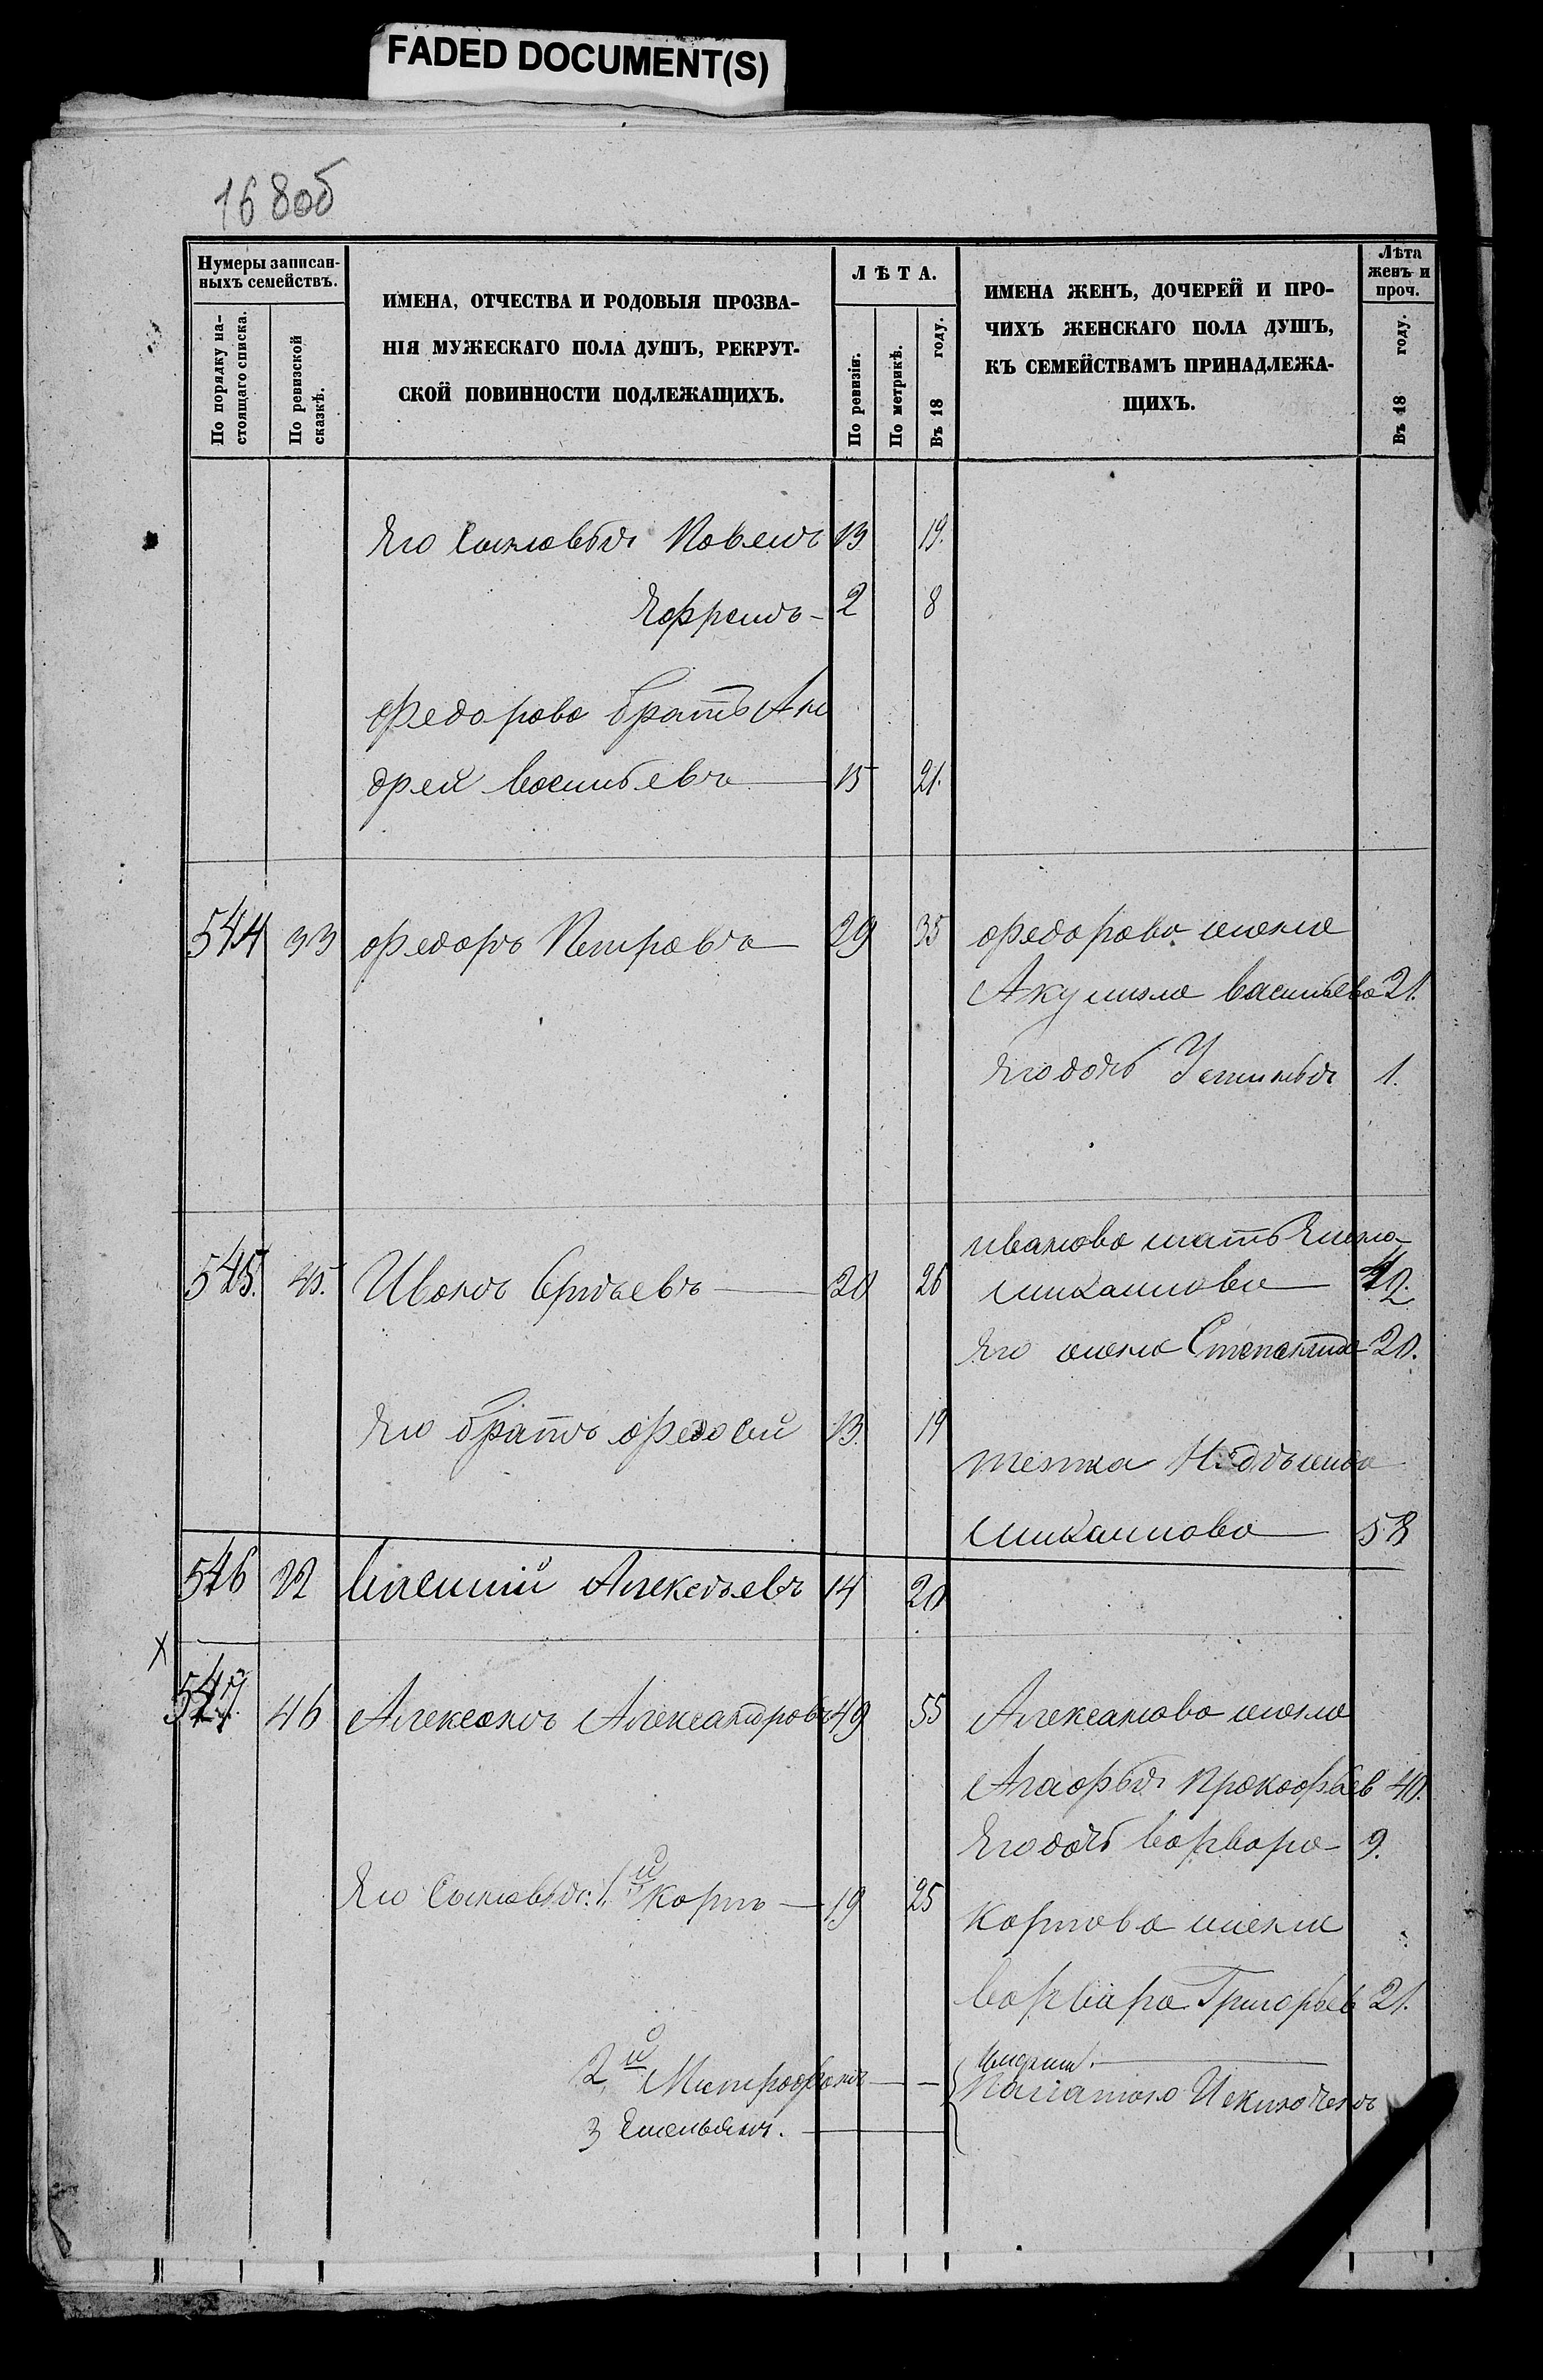 FADED DOCUMENT(S)
168об
Нумеры записан-
ныхъ семействъ.
По порядку на-
стоящаго списка.
По ревизской
сказкѣ.
ИМЕНА, ОТЧЕСТВА И РОДОВЫЯ ПРОЗВА-
НІЯ МУЖЕСКАГО ПОЛА ДУШЪ, РЕКРУТ-
СКОЙ ПОВИННОСТИ ПОДЛЕЖАЩИХЪ.
ЛѢТА.
По ревизіи.
По метрикѣ.
Въ 18 году.
ИМЕНА ЖЕНЪ, ДОЧЕРЕЙ И ПРО-
ЧИХЪ ЖЕНСКАГО ПОЛА ДУШЪ,
КЪ СЕМЕЙСТВАМЪ ПРИНАДЛЕЖА-
ЩИХЪ.
Лѣта
женъ и
проч.
Въ 18 году.
Его Сыновья Павелъ 13 19.
Ефремъ 2 8
Федорова братъ Ан
дрей Васильевъ 15 21.
544 33 Федоръ Петровъ 29 35 Федорова жена
Акулина Васильева 21.
Его дочь Устинья 1.
Иванова мать
545. 45. Иванъ 20 26 42.
Его жена Степанида 20.
Его братъ Федосей 13. 19
тетка
58
546 22 Алексѣевъ 14 20
547. 46 Алексанъ Александровъ 49 55 Алексанова жена
Агафья Прокофьев 40.
Его дочь Варвара 9.
Его Сыновья: 1й Карпъ 19 25
Карпова жена
Варвара Григорьев 21.
2й Митрофанъ
3 Емельянъ.